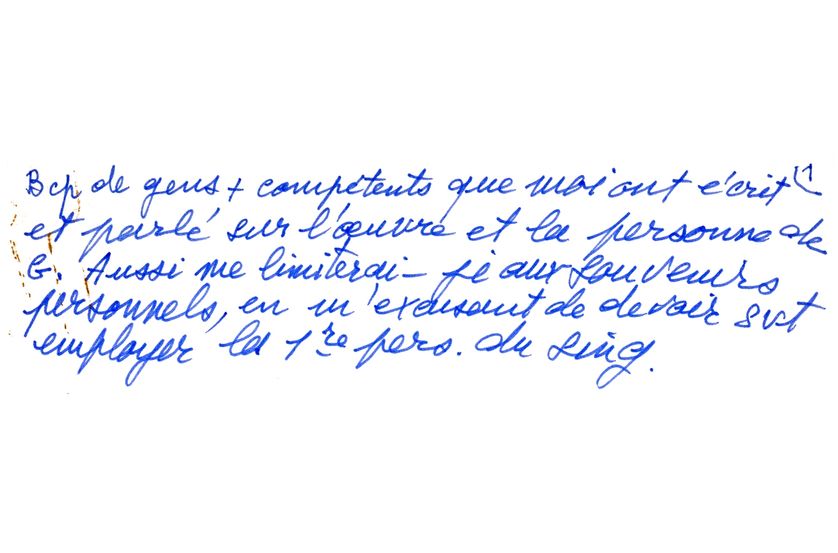 Bcp de gens + compétents que moi ont écrit (1
et parlé sur l'œuvre et la personne de
G. Aussi me limiterai-je aux souvenirs
personnels, en m'excusant de devoir svt
employer la 1re pers. du sing.